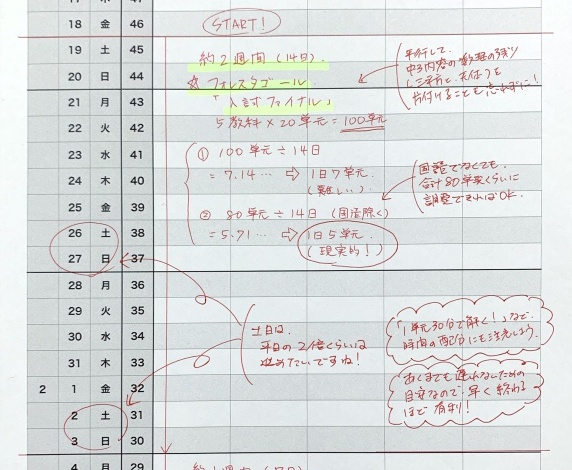 18 金 46 START!
19 土 45
20 日 44
21 月 43
22 火 42
23 水 41
24 木 40
25 金 39
26 土 38
27 日 37
28 月 36
29 火 35
30 水 34
31 木 33
2 1 金 32
2 土 31
3 日 30
4 月 29
約2週間(14日).
☆フォレスタゴール
「入試ファイナル」
5教科×20単元=100単元
① 100単元÷14日
=7.14… ⇨ 1日7単元.
(難しい..)
② 80単元÷14日(国語除く)
=5.71… ⇨ 1日5単元.
(現実的!)
平行して、
中3内容の数理の残り
(三平方と、天体)を
片付けることも忘れずに!
国語でなくても、
合計80単元くらいに
調整できればOK.
土日は、
平日の2倍くらいは
進めたいですね!
「1単元30分で解く!」など、
時間の配分にも注意しよう.
あくまでも遅れないための
目安なので、早く終わる
ほど有利!